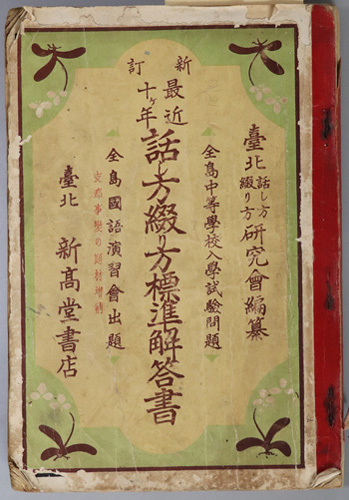 臺北 話し方 綴り方 研究會編纂
全島中等學校入學試驗問題
新訂
最近十ヶ年 話し方綴り方標準解答書
全島國語演習會出題
支那事變の題材增補
臺北 新高堂書店